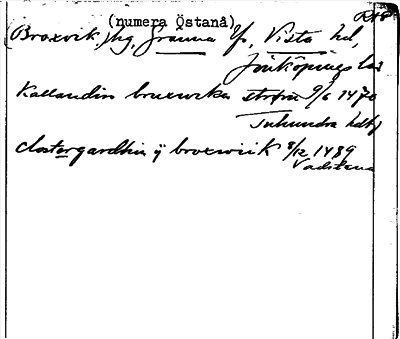 (numera Östanå)
(Broxvik,) hg, Gränna lfs, Vista hd,
Jönköpings län
Kallandin bruxwika strøm 9/6 1470
Tuhundra hdbf
clostergardhin ij broxwiik 8/12 1489
Vadstena